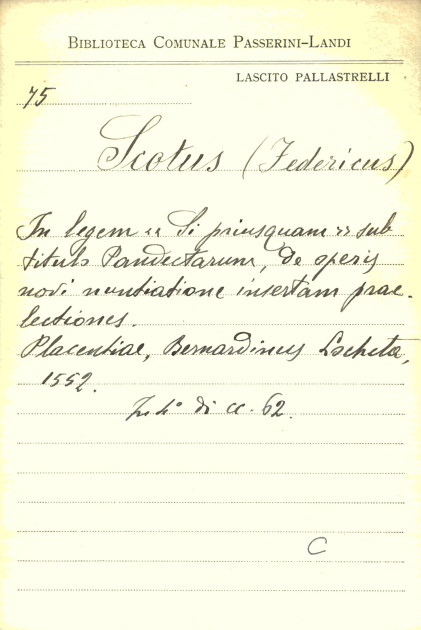 BIBLIOTECA COMUNALE PASSERINI-LANDI
LASCITO PALLASTRELLI
75
Scotus (Federicus)
In legem « Si priusquam » sub
titulo Pandectarum, de operis
novi nuntiatione insertam prae-
lectiones.
Placentiae, Bernardinus Locheta,
1552.
In 4° di cc. 62.
C